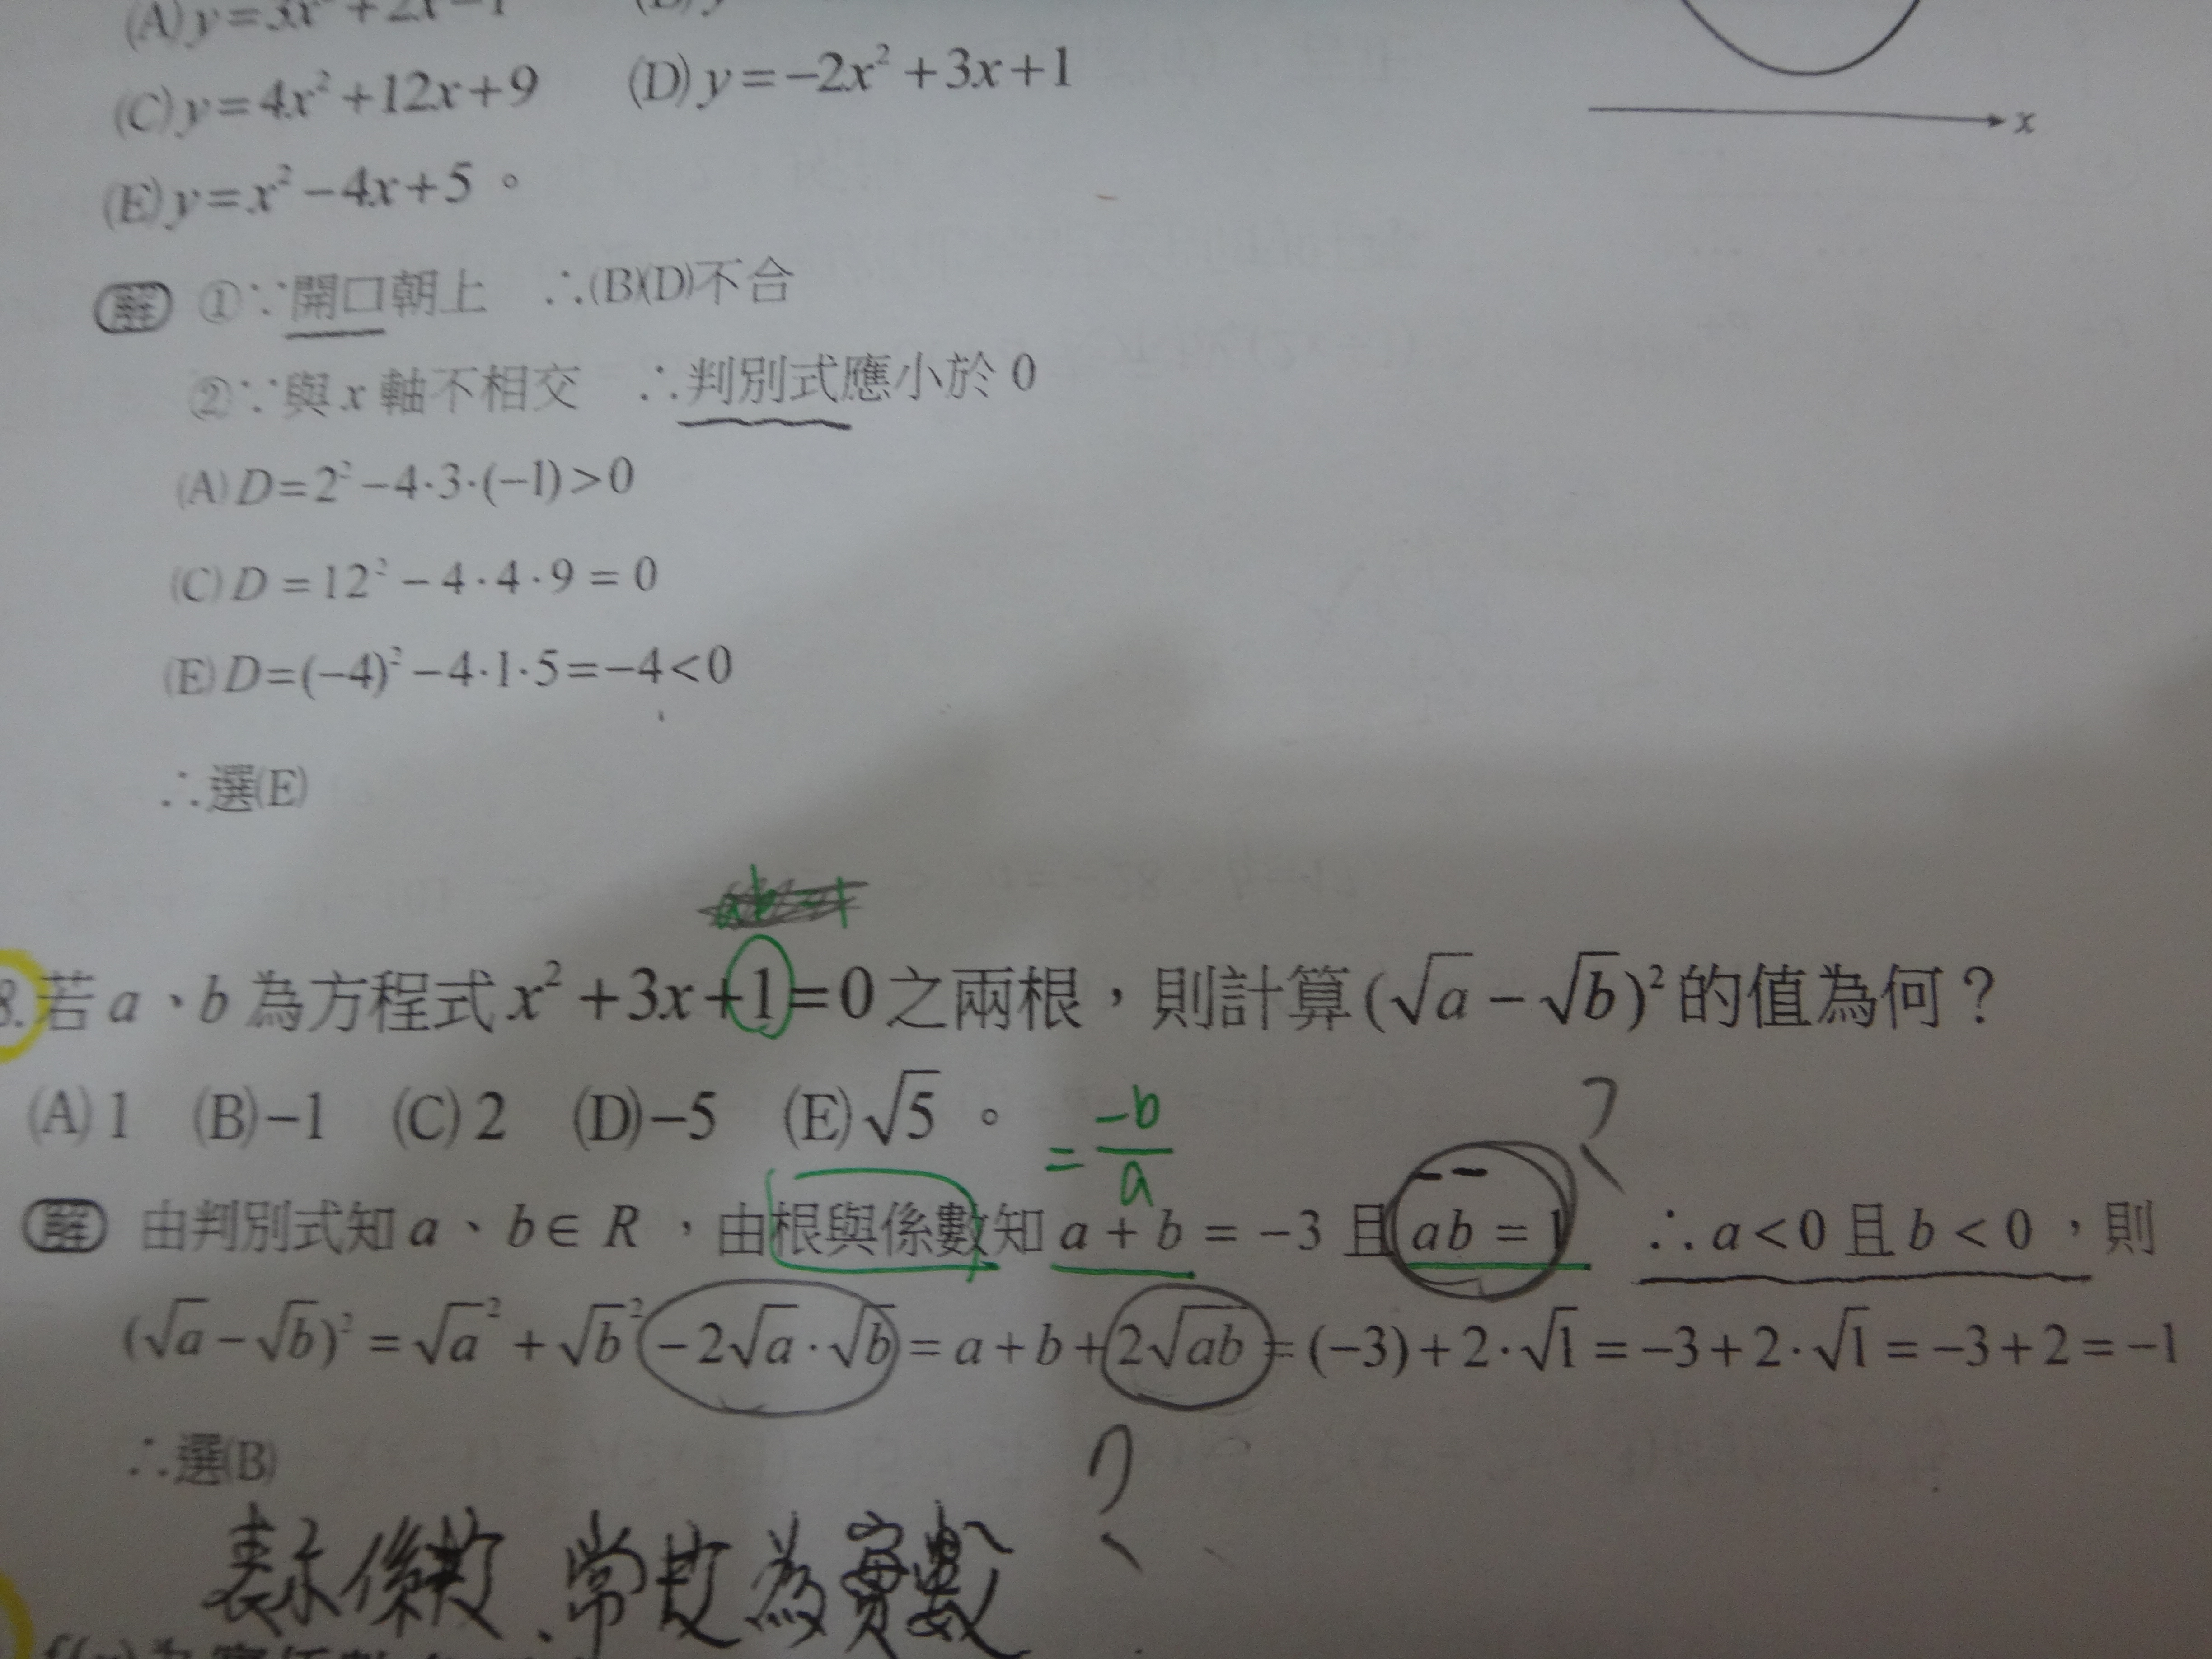 (A) y=3x²+2x−1
(C) y=4x²+12x+9 (D) y=−2x²+3x+1
x
(E) y=x²−4x+5。
解 ①∵開口朝上 ∴(B)(D)不合
②∵與x軸不相交 ∴判別式應小於0
(A) D=2²−4·3·(−1)>0
(C) D=12²−4·4·9=0
(E) D=(−4)²−4·1·5=−4<0
∴選(E)
8.若a、b為方程式x²+3x+1=0之兩根，則計算(√a−√b)²的值為何？
(A) 1 (B) −1 (C) 2 (D) −5 (E) √5。
= −b/a
?
解 由判別式知a、b∈R，由根與係數知a+b=−3且ab=1 ∴a<0且b<0，則
(√a−√b)²=√a²+√b²−2√a·√b=a+b+2√ab=(−3)+2·√1=−3+2·√1=−3+2=−1
∴選(B)
?
表示係數、常數為實數